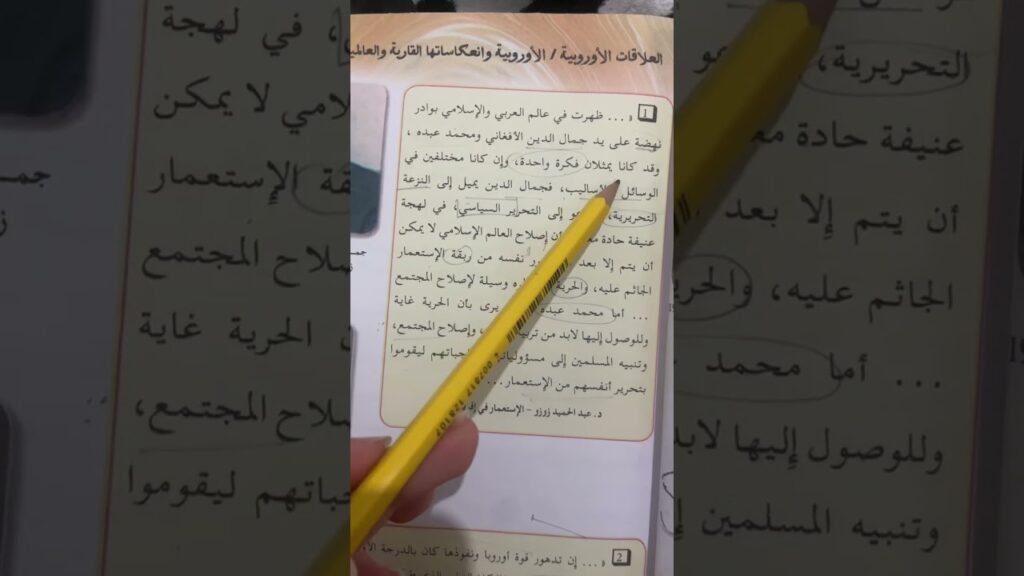 العلاقات الأوروبية / الأوروبية وانعكاساتها القارية والعالمية
1 « ... ظهرت في عالم العربي والإسلامي بوادر
نهضة على يد جمال الدين الأفغاني ومحمد عبده ،
وقد كانا يمثلان فكرة واحدة، وإن كانا مختلفين في
الوسائل والأساليب، فجمال الدين يميل إلى النزعة
التحريرية، إلى التحرير السياسي، في لهجة
عنيفة حادة أن إصلاح العالم الإسلامي لا يمكن
أن يتم إلا بعد نفسه من ربقة الإستعمار
الجاثم عليه، والحرية وسيلة لإصلاح المجتمع
... أما محمد عبده يرى بأن الحرية غاية
وللوصول إليها لابد من وإصلاح المجتمع،
وتنبيه المسلمين إلى ليقوموا
بتحرير أنفسهم من الإستعمار ...
د. عبد الحميد زوزو - الإستعمار في
2 « ... إن تدهور قوة أوروبا ونفوذها كان بالدرجة